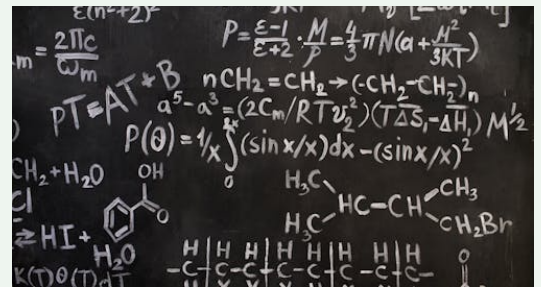 ε(n²+2)²
m = 2πc/ω_m
P = ε-1/ε+2 · M/ρ = 4/3 πN(a + μ²/3KT)
PT=AT+B
nCH₂=CH₂→(-CH₂-CH₂-)n
a⁵-a³=(2Cm/RTυ₂²)(TΔS₁-ΔH₁)M^½
P(θ)=1/x ∫(sin x/x)dx-(sinx/x)²
0
CH₂+H₂O
OH
O
Cl
H₃C
H₃C
HC-CH
CH₃
CH₂Br
⇄HI+
H₂O
H H H H H H H
-C-C-C-C-C-C-C-
O
K(T)θ(T)